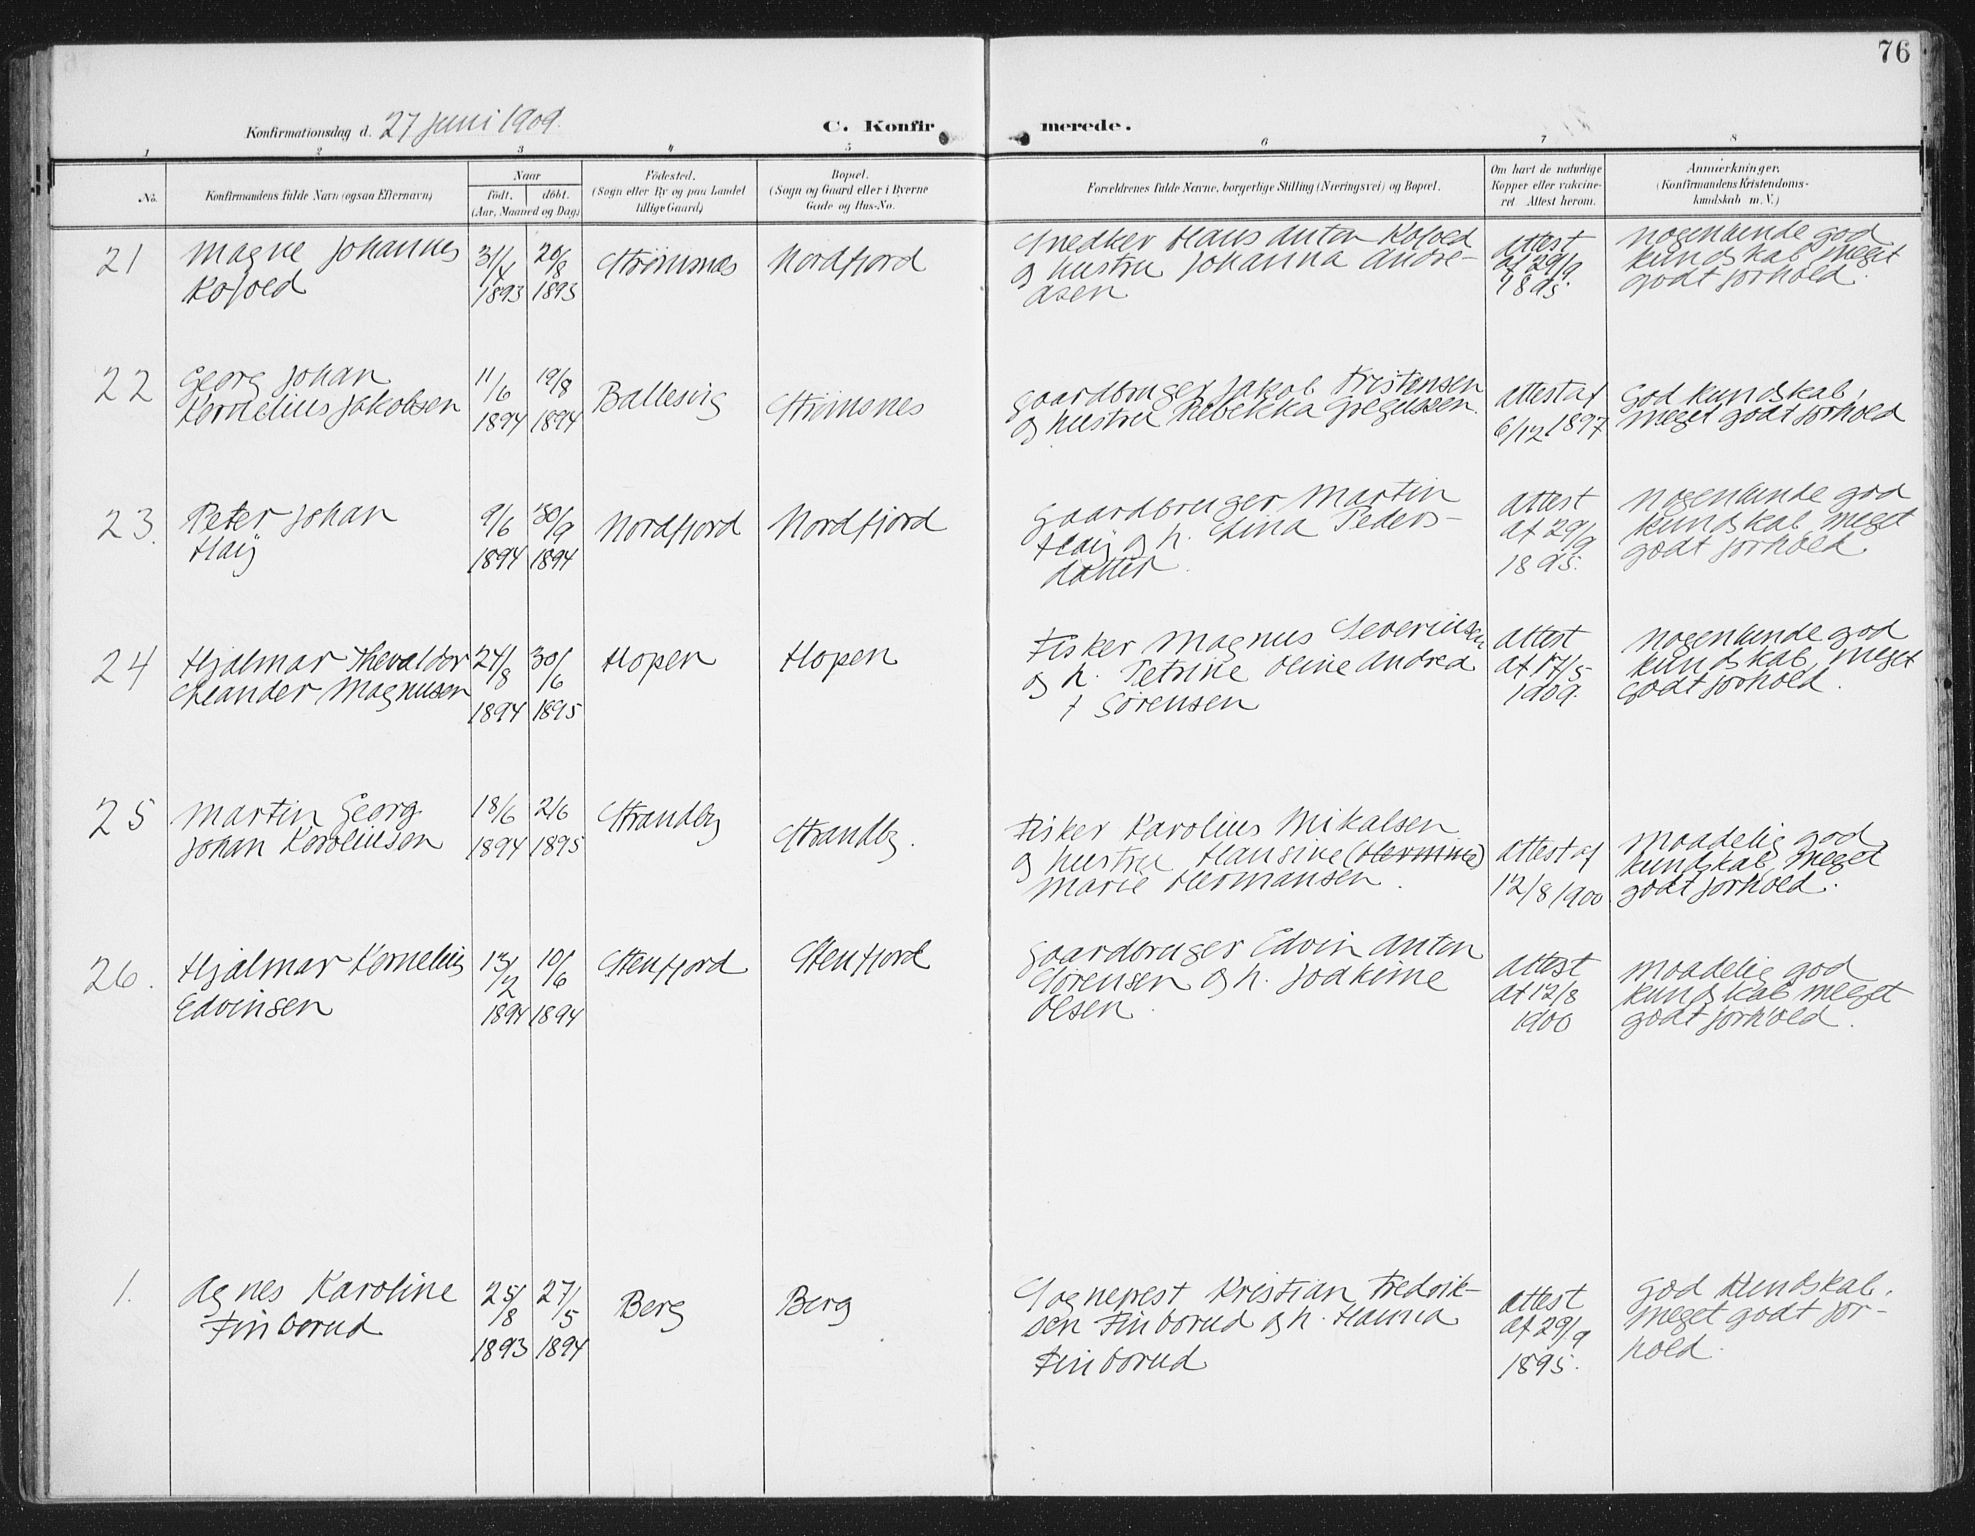 76
Konfirmationsdag d. 27 juni 1909.
C. Konfirmerede.
1 2 3 4 5 6 7 8
No.
Konfirmandens fulde Navn (ogsaa Efternavn)
Naar
födt. döbt.
(Aar, Maaned og Dag)
Födested.
(Sogn eller By og paa Landet
tillige Gaard)
Bopæl.
(Sogn og Gaard eller i Byerne
Gade og Hus-No.
Forældrenes fulde Navne, borgerlige Stilling (Næringsvei) og Bopæl.
Om havt de naturlige
Kopper eller vakcine-
ret. Attest herom.
Anmærkninger.
(Konfirmandens Kristendoms-
kundskab m. V.)
21
Magne Johannes
Kofoed
31/4
1893
20/8
1893
Strömsnæs
Nordfjord
Snedker Hans Anton Kofoed
og hustru Johanna Andre-
asen
Attest
af 29/9
1895
Nogenlunde god
kundskab, meget
godt forhold.
22
Georg Johan
Kornelius Jakobsen
11/6
1894
19/8
1894
Ballesvig
Strömsnes
Gaardbruger Jakob Kristensen
og hustru Rebekka Gregussen.
Attest af
6/12 1897
God kundskab,
meget godt forhold
23.
Peter Johan
Haij
9/6
1894
30/9
1894
Nordfjord
Nordfjord
Gaardbruger Martin
Haij og h. Lina Peders-
datter.
Attest
af 29/9
1895.
Nogenlunde god
kundskab, meget
godt forhold.
24
Hjalmar Thevaldor
Leander Magnusen
24/8
1894
30/6
1895
Hopen
Hopen
Fisker Magnus Severinsen
og h. Petrine Oline Andrea
f Sörensen
Attest
af 17/5
1909.
Nogenlunde god
kundskab, meget
godt forhold.
25
Martin Georg
Johan Karoliusen
18/6
1894
2/6
1895
Strandby
Strandby.
Fisker Karolius Mikalsen
og hustru Hansine (Hermine)
Marie Hermansen.
Attest af
12/8 1900
Maadelig god
kundskab, meget
godt forhold.
26.
Hjalmar Kornelius
Edvinsen
13/2
1894
10/6
1894
Stenfjord
Stenfjord
Gaardbruger Edvin Anton
Sörensen og h. Jodkime
Olsen.
Attest
af 12/8
1900
Maadelig god
kundskab meget
godt forhold.
1.
Agnes Karoline
Finborud
25/8
1893
27/5
1894
Berg
Berg
Sogneprest Kristian Fredrik-
sen Finborud og h. Hanna
Finborud
Attest
af 29/9
1895.
God kundskab.
Meget godt for-
hold.